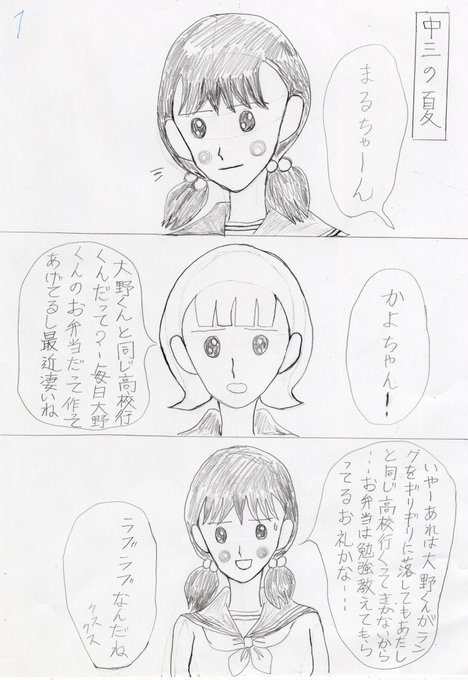 1
中三の夏
まるちゃーん
かよちゃんー
大野くんと同じ高校行
くんだって?〜毎日大野
くんのお弁当だって作って
あげてるし最近凄いね
いやーあれは大野くんがラン
クをギリギリに落してもあたし
と同じ高校行くってきかないから
…お弁当は勉強教えてもら
ってるお礼かな…
ラブラブなんだね
クスクス